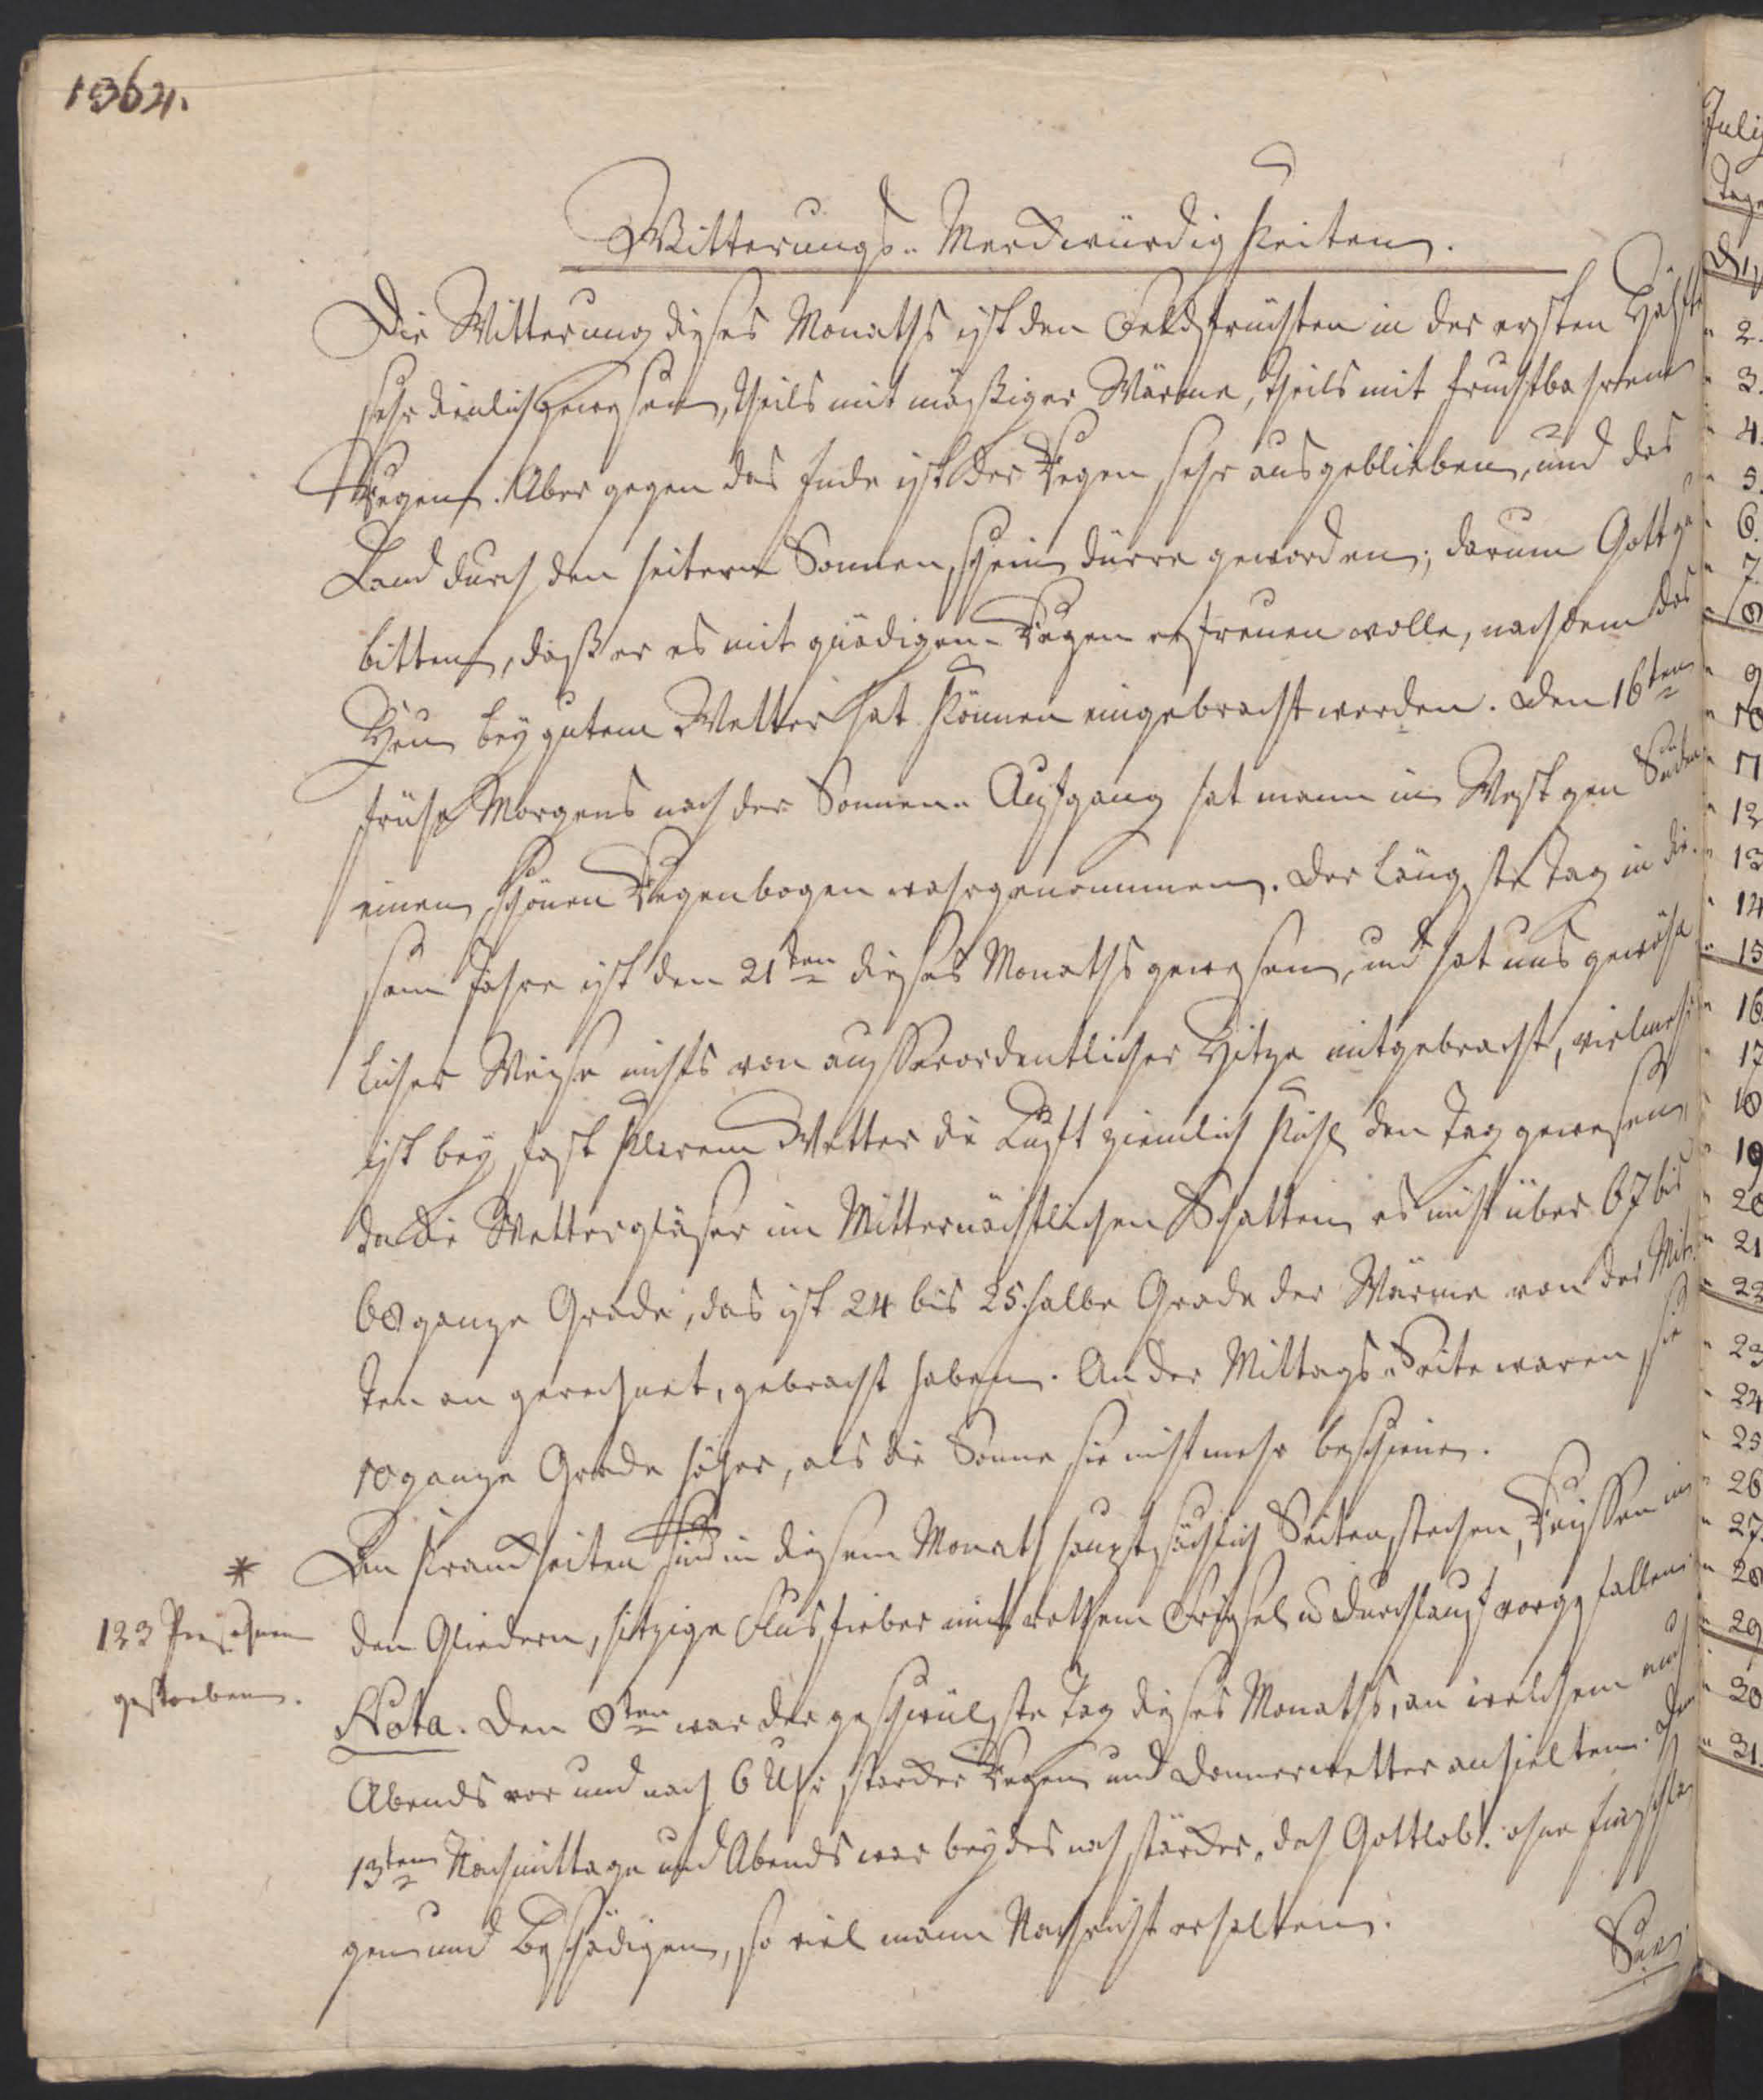 1364.
Witterungs-Merckwürdigkeiten.
Die Witterung dieses Monaths ist den Feldfrüchten in der ersten Hälfte
sehr dienlich gewesen, theils mit mäßiger Wärme, theils mit fruchtbahrem
Regen. Aber gegen das Ende ist der Regen sehr ausgeblieben, und das
Land durch den heitern Sonnenschein dürre geworden; darum Gott zu
bitten, daß er es mit gnädigen Regen erfreuen wolle, nachdem das
Heu bey gutem Wetter hat können eingebracht werden. Den 16ten
frühe Morgens nach der Sonnen-Aufgang hat mann in West gen Süden
einen schönen Regenbogen wahrgenommen. Der längste Tag in die-
sem Jahre ist den 21ten dieses Monaths gewesen, und hat uns gewöhn
licher Weise nichts von ausserordentlicher Hitze mitgebracht, vielmehr
ist bey fast klarem Wetter die Luft ziemlich kühl den Tag gewesen,
da die Wettergläser im Mitternächtlichen Schatten es nicht über 67 bis
68 ganze Grade, das ist 24 bis 25 halbe Grade der Wärme von der Mit-
ten an gerechnet, gebracht haben. An der Mittags-Seite waren sie
10 ganze Grade höher, als die Sonne sie nicht mehr beschiene.
An Kranckheiten sind in diesem Monath hauptsächlich Seitenstechen, Reissen in
den Gliedern, hitzige Flusfieber mit rothem Friesel u. Durchlauf vorgefallen.
* 123 Persohnen
gestorben.
Nota. Den 8ten war der geschwülste Tag dieses Monaths, an welchem auch
Abends vor und nach 6 Uhr starcker Regen und Donnerwetter anhielten. Den
13ten Nachmittage und Abends war beydes noch stärcker, doch Gottlob! ohne Einschla-
gen und Beschädigen, so viel mann Nachricht erhalten.
July
Tage
2.
3.
4.
5.
6.
7.
8
9
10
11
12
13
14
15
16.
17
18
19
20
21
22
23
24
25
26
27.
28
29
30
31.